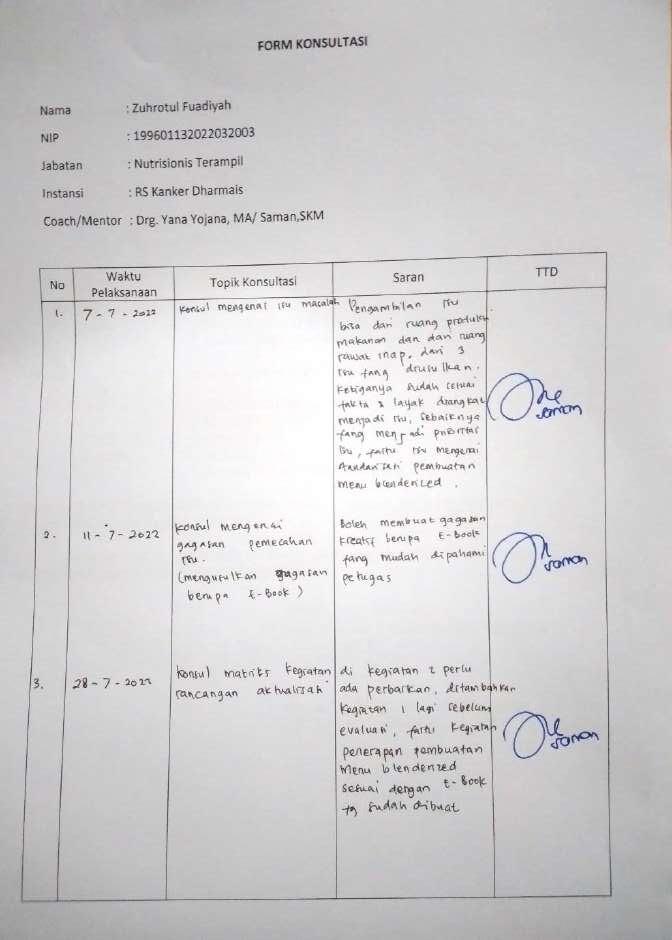 FORM KONSULTASI
Nama : Zuhrotul Fuadiyah
NIP : 199601132022032003
Jabatan : Nutrisionis Terampil
Instansi : RS Kanker Dharmais
Coach/Mentor : Drg. Yana Yojana, MA/ Saman,SKM
No
Waktu
Pelaksanaan
Topik Konsultasi
Saran
TTD
1.
7-7-2022
Konsul mengenai isu masalah
Pengambilan isu
bisa dari ruang produksi
makanan dan dari ruang
rawat inap, dari 3
isu yang diusulkan.
Ketiganya sudah sesuai
fakta & layak diangkat
menjadi isu, sebaiknya
yang menjadi prioritas
isu, yaitu isu mengenai
standarisasi pembuatan
menu blenderized.
Saman
2.
11-7-2022
Konsul mengenai
gagasan pemecahan
isu.
(mengusulkan gagasan
berupa E-Book)
Boleh membuat gagasan
kreatif berupa E-Book
yang mudah dipahami
petugas
Saman
3.
28-7-2022
Konsul matriks kegiatan
rancangan aktualisasi
di kegiatan 2 perlu
ada perbaikan, ditambahkan
kegiatan 1 lagi sebelum
evaluasi, yaitu kegiatan
penerapan pembuatan
menu blenderized
sesuai dengan E-Book
yg sudah dibuat
Saman